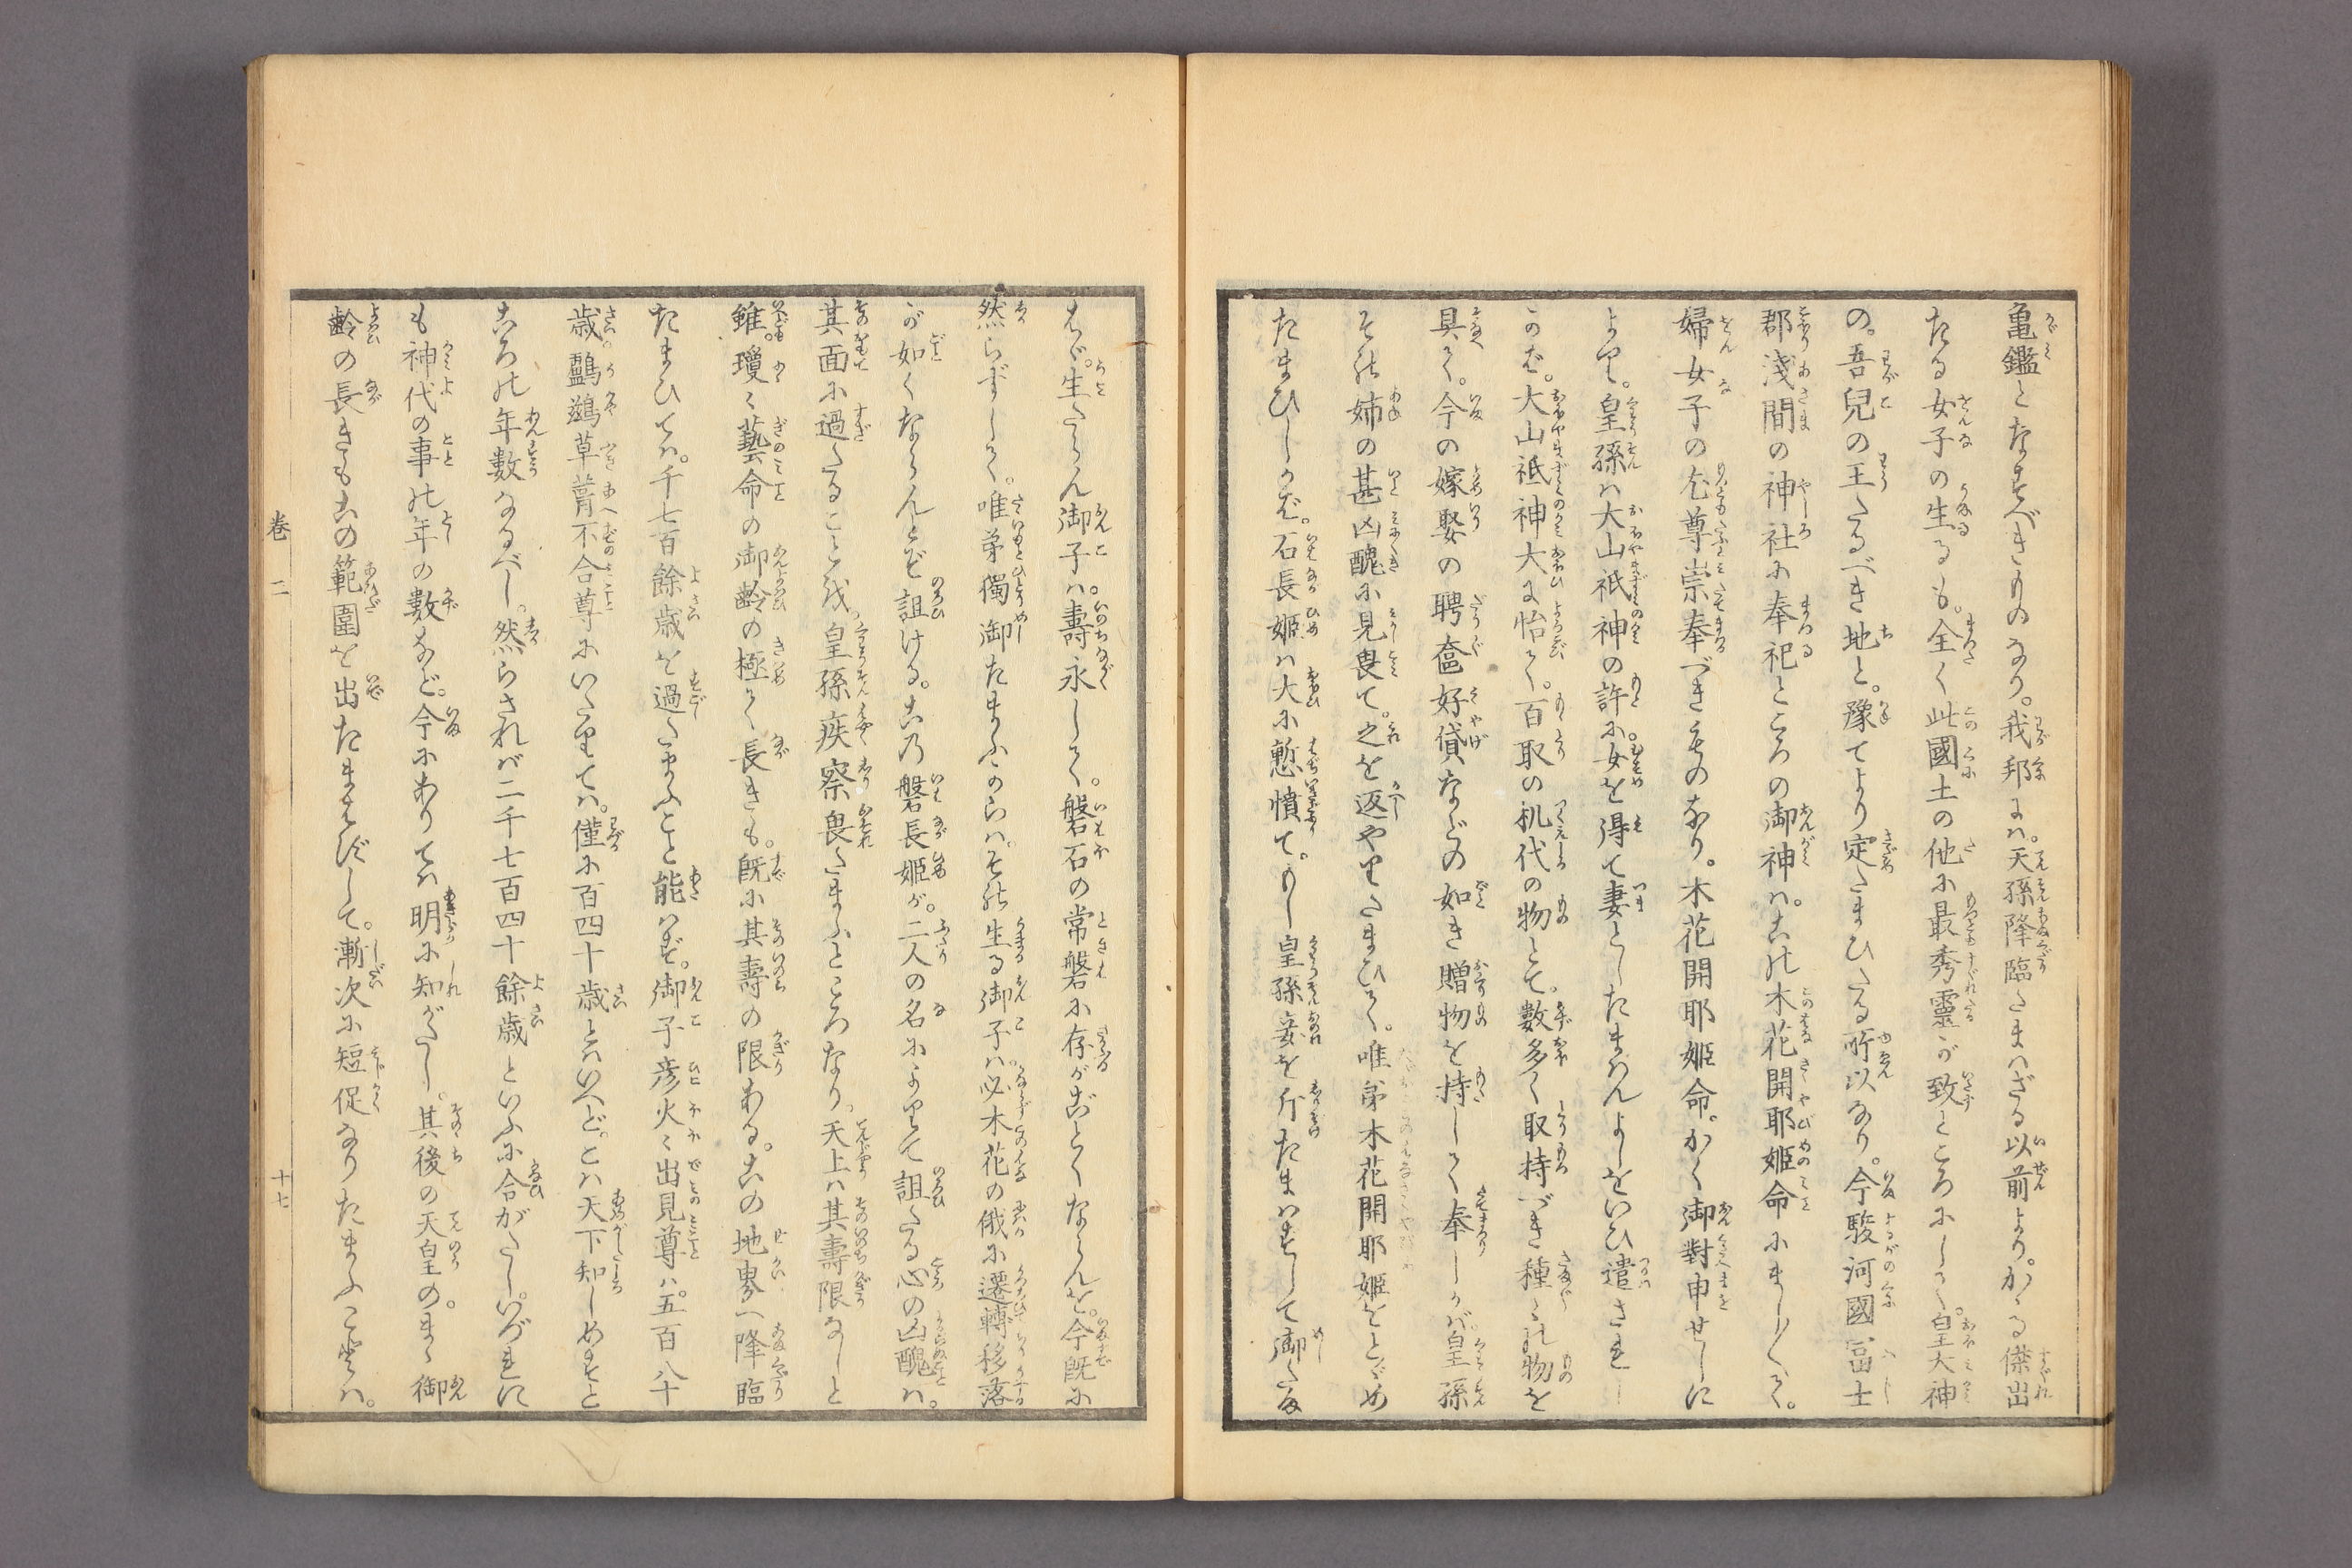 亀鑑となすべきものなり。我邦には。天孫降臨たまはざる以前より。かゝる傑出
たる女子の生るも。全く此國土の他に最秀靈が致ところにして。皇大神
の。吾兒の王たるべき地と。豫てより定たまひたる所以なり。今駿河國冨士
郡淺間の神社に奉祀ところの御神は。この木花開耶姫命にまし〳〵て。
婦女子の尤尊崇奉べきものなり。木花開耶姫命。かく御對申せしに
よりて。皇孫は大山祇神の許に。女を得て妻としたまはんよしをいひ遣されし
かば。大山祇神大に怡て。百取の机代の物とて。數多く取持べき種々の物を
具て。今の嫁娶の聘奩好貸などの如き贈物を持して奉しかば。皇孫
その姉の甚凶醜に見畏て。之を返やりたまひて。唯弟木花開耶姫をとゞめ
たまひしかば。石長姫は大に慙憤て。もし皇孫妾を斥たまはずして御たま
はゞ。生たらん御子は。壽永して。磐石の常磐に存がごとくならんを。今既に
然らずして。唯弟獨御たまふからは。その生る御子は。必木花の俄に遷轉移落
が如くならんとぞ詛ける。この磐長姫が。二人の名によりて詛たる心の凶醜は。
其面に過たることを。皇孫疾察畏たまふところなり。天上は其壽限なしと
雖。瓊々藝命の御齡の極て長きも。既に其壽の限ある。この地界へ降臨
たまひては。千七百餘歳を過たまふこと能はず。御子彦火々出見尊は。五百八十
歳。鸕鷀草葺不合尊にいたりては。僅に百四十歳とはいへど。こは天下知しめすと
ころの年數なるべし。然らざれば二千七百四十餘歳といふに合がたし。いづれに
も神代の事の年の數など。今にありては明に知がたし。其後の天皇の。まゝ御
齡の長きもこの範圍を出たまはずして。漸次に短促なりたまふことは。
卷二
十七